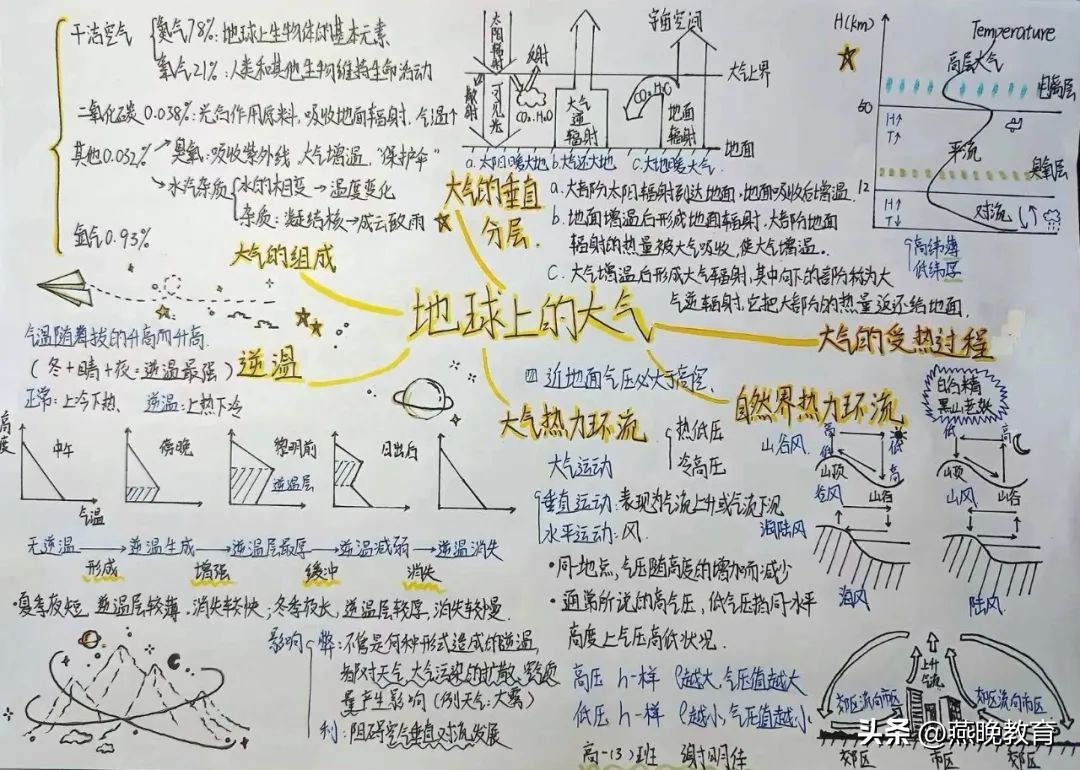 干洁空气
氮气78%：地球上生物体的基本元素
氧气21%：人类和其他生物维持生命活动
二氧化碳0.038%：光合作用原料，吸收地面辐射，气温↑
其他0.032%
臭氧：吸收紫外线，大气增温，"保护伞"
水汽杂质
水的相变→温度变化
杂质：凝结核→成云致雨
氩气0.93%
大气的组成
太阳辐射
散射
可见光
反射
CO₂.H₂O
大气逆辐射
宇宙空间
CO₂.H₂O
地面辐射
大气上界
地面
a.太阳暖大地
b.大气还大地
c.大地暖大气
大气的垂直
分层
a.大部分太阳辐射到达地面，地面吸收后增温
b.地面增温后形成地面辐射，大部分地面
辐射的热量被大气吸收，使大气增温。
C.大气增温后形成大气辐射，其中向下的部分称为大
气逆辐射，它把大部分的热量返还给地面，
H(km)
Temperature
高层大气
电离层
60
H↑
T↑
平流
臭氧层
12
H↑
T↓
对流
高纬薄
低纬厚
地球上的大气
大气的受热过程
气温随海拔的升高而升高
(冬+晴+夜=逆温最强)
逆温
正常：上冷下热、
逆温：上热下冷
高度
中午
傍晚
黎明前
逆温层
日出后
气温
无逆温→逆温生成→逆温层最厚→逆温减弱→逆温消失
形成
增强
缓冲
消失
·夏季夜短，逆温层较薄，消失较快；冬季夜长，逆温层较厚，消失较慢.
影响
弊：不管是何种形式造成的逆温，
都对天气、大气污染的扩散、空气质
量产生影响（例天气：大雾）
利：阻碍空气垂直对流发展
近地面气压必大于高空、
大气热力环流
热低压
冷高压
大气运动
垂直运动：表现为气流上升或气流下沉
水平运动：风
·同一地点，气压随高度的增加而减少
·通常所说的高气压，低气压指同一水平
高度上气压高低状况.
高压 h一样 ρ越大，气压值越大
低压 h一样 ρ越小，气压值越小
自然界热力环流
白谷精
黑山老妖
山谷风
高
低
低
高
山顶
山谷
谷风
低
高
山顶
山谷
山风
海陆风
海风
陆风
上升气流
郊区流向市区
郊区流向市区
郊区
市区
郊区
高一(3)班 谢明佳
头条 @燕晚教育